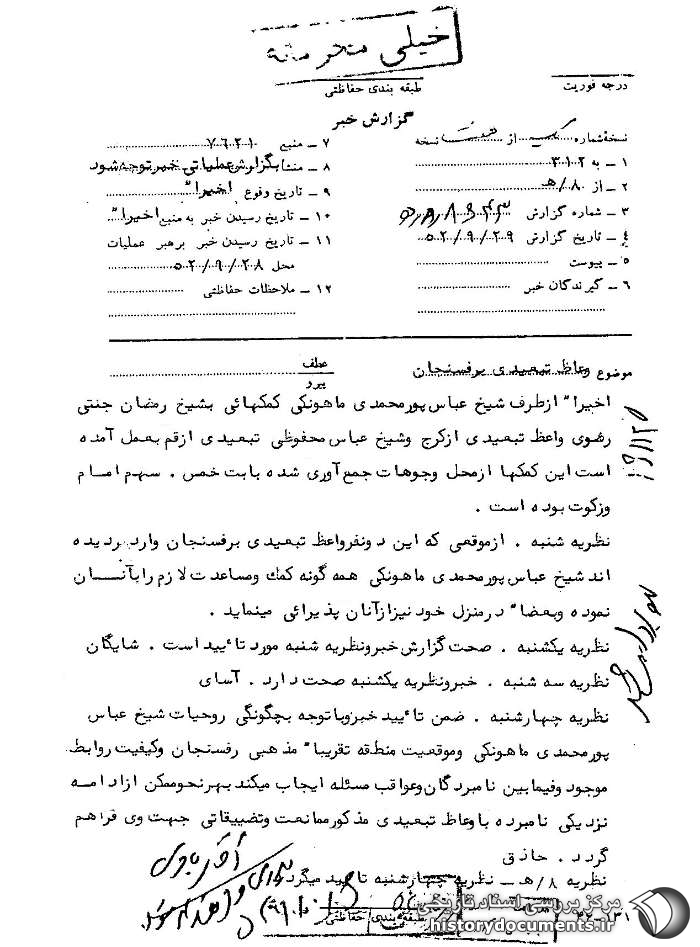 خیلی محرمانه
درجه فوریت
طبقه بندی حفاظتی
گزارش خبر
نسخهٔ شماره یک از هفت نسخه
۱ ــ به ۳۰۲
۲ ــ از ۸/ هـ
۳ ــ شماره گزارش
۴ ــ تاریخ گزارش ۵۲/۹/۲۹
۵ ــ پیوست
۶ ــ گیرندگان خبر
۷ ــ منبع ۷۶۲۱۰
۸ ــ منشا بگزارش عملیاتی خبر توجه شود
۹ ــ تاریخ وقوع اخیرا"
۱۰ ــ تاریخ رسیدن خبر به منبع اخیرا"
۱۱ ــ تاریخ رسیدن خبر برهبر عملیات
محل ۵۲/۹/۲۸
۱۲ ــ ملاحظات حفاظتی
موضوع وعاظ تبعیدی برفسنجان
عطف
پیرو
اخیرا" ازطرف شیخ عباس پورمحمدی ماهونکی کمکهائی بشیخ رمضان جنتی
رضوی واعظ تبعیدی ازکرج وشیخ عباس محفوظی تبعیدی ازقم بعمل آمده
است این کمکها ازمحل وجوهات جمع آوری شده بابت خمس . سهم امام
وزکوت بوده است .
نظریه شنبه . ازموقعی که این دونفرواعظ تبعیدی برفسنجان وارد گردیده
اند شیخ عباس پورمحمدی ماهونکی همه گونه کمك ومساعدت لازم رابآنسان
نموده وبعضا" درمنزل خودنیزازآنان پذیرائی مینماید .
نظریه یکشنبه . صحت گزارش خبرونظریه شنبه مورد تائید است . شایگان
نظریه سه شنبه . خبرونظریه یکشنبه صحت دارد . آسای
نظریه چهارشنبه . ضمن تائید خبروباتوجه بچگونگی روحیات شیخ عباس
پورمحمدی ماهونکی وموقعیت منطقه تقریبا" مذهبی رفسنجان وکیفیت روابط
موجود وفیمابین نامبردگان وعواقب مسئله ایجاب میکند بهرنحوممکن ازادامه
نزدیکی نامبرده باوعاظ تبعیدی مذکورممانعت وتضییقاتی جهت وی فراهم
گردد . حاذق
نظریه ۸/هـ ــ نظریه چهارشنبه تائید میگردد
طبقه بندی حفاظتی
مرکز بررسی اسناد تاریخی
historydocuments.ir